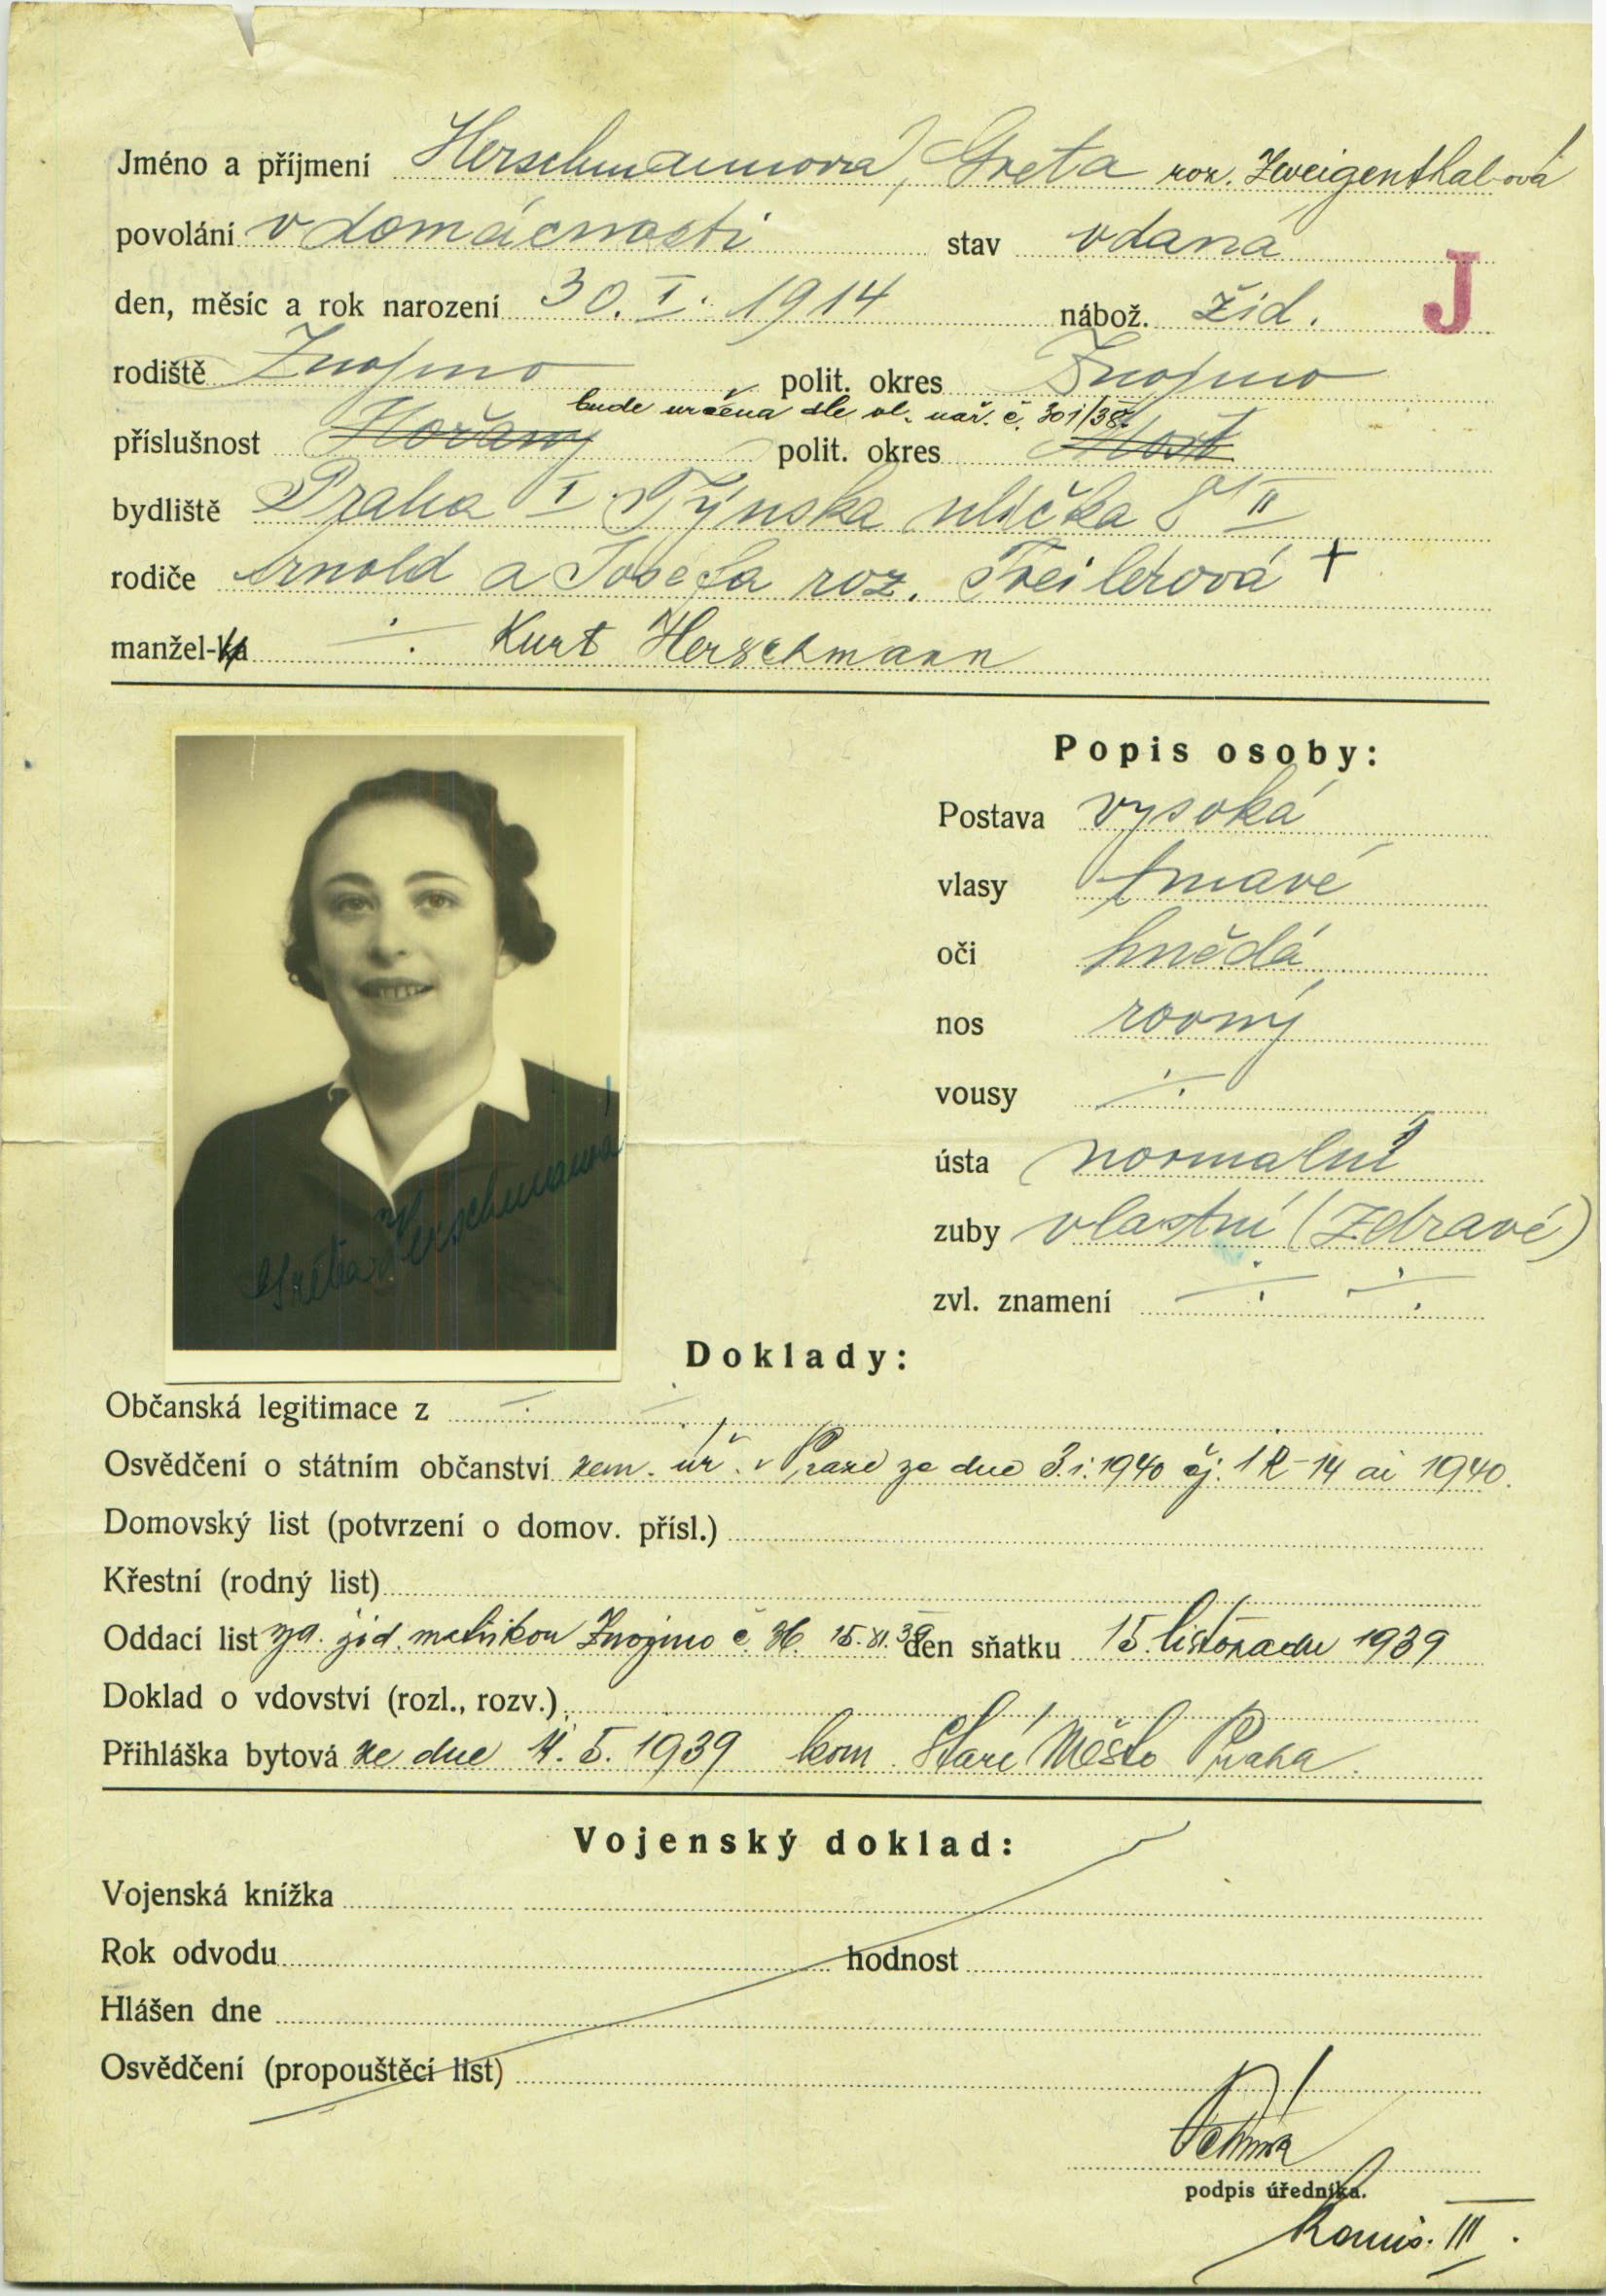 Jméno a příjmení Herschmannová, Greta roz. Zweigenthal-ová
povolání v domácnosti stav vdaná
den, měsíc a rok narození 30. I. 1914 nábož. žid. J
rodiště Znojmo polit. okres Znojmo
bude určena dle vl. nař. č. 301/38.
příslušnost Hořany polit. okres Most
bydliště Praha I Týnska ulička 8 II
rodiče Arnold a Josefa roz. +
manžel-ka ÷ Kurt Herschmann
Popis osoby:
Postava vysoká
vlasy tmavé
oči hnědá
nos rovný
vousy ÷
ústa normalní
zuby vlastní (zdravé)
zvl. znamení ÷ ÷
Greta Herschmannová
Doklady:
Občanská legitimace z ÷ ÷
Osvědčení o státním občanství zem. úř. v Praze ze dne 3.1.1940 čj. 1 R-14 ai 1940.
Domovský list (potvrzení o domov. přísl.)
Křestní (rodný list)
Oddací list žid. matrikou Znojmo č. 36. 15.XI.39 den sňatku 15. listopadu 1939
Doklad o vdovství (rozl., rozv.)
Přihláška bytová ze dne 4. 5. 1939 kom. Staré Město Praha.
Vojenský doklad:
Vojenská knížka
Rok odvodu hodnost
Hlášen dne
Osvědčení (propouštěcí list)
podpis úředníka.
Komis. III.